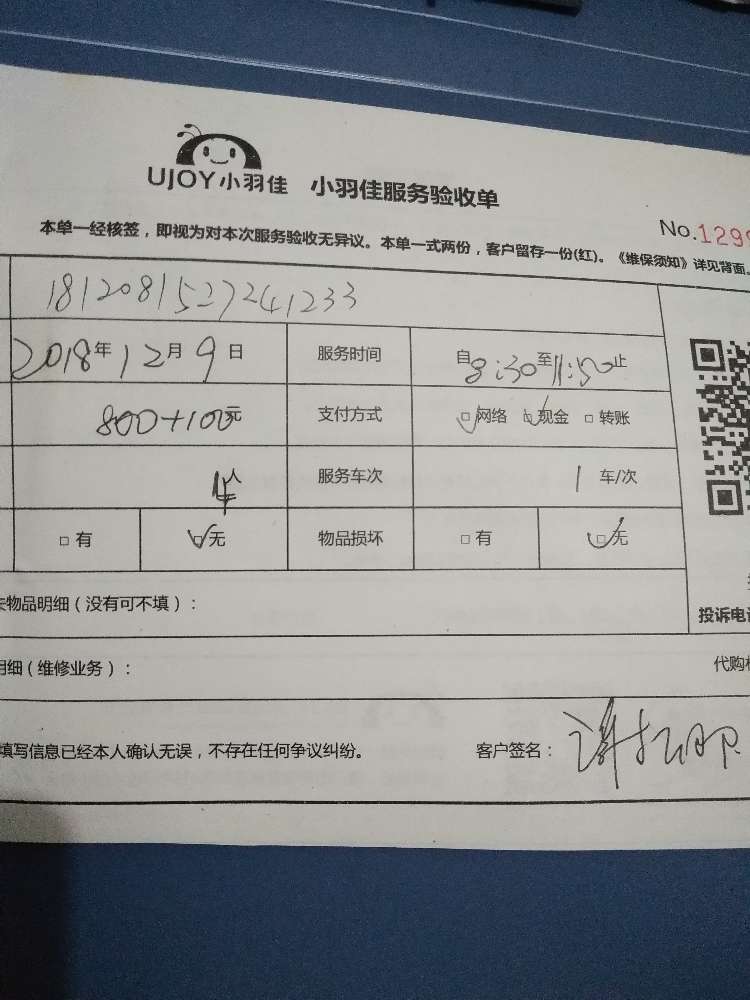 UJOY小羽佳 小羽佳服务验收单
No.1299
本单一经核签，即视为对本次服务验收无异议。本单一式两份，客户留存一份(红)。《维保须知》详见背面。
1812081527241233
2018年12月9日 服务时间 自8:30至11:50止
800+100元 支付方式 □网络 □现金 □转账
4人 服务车次 1车/次
□有 □无 物品损坏 □有 □无
物品明细（没有可不填）：
投诉电
明细（维修业务）： 代购
填写信息已经本人确认无误，不存在任何争议纠纷。 客户签名：